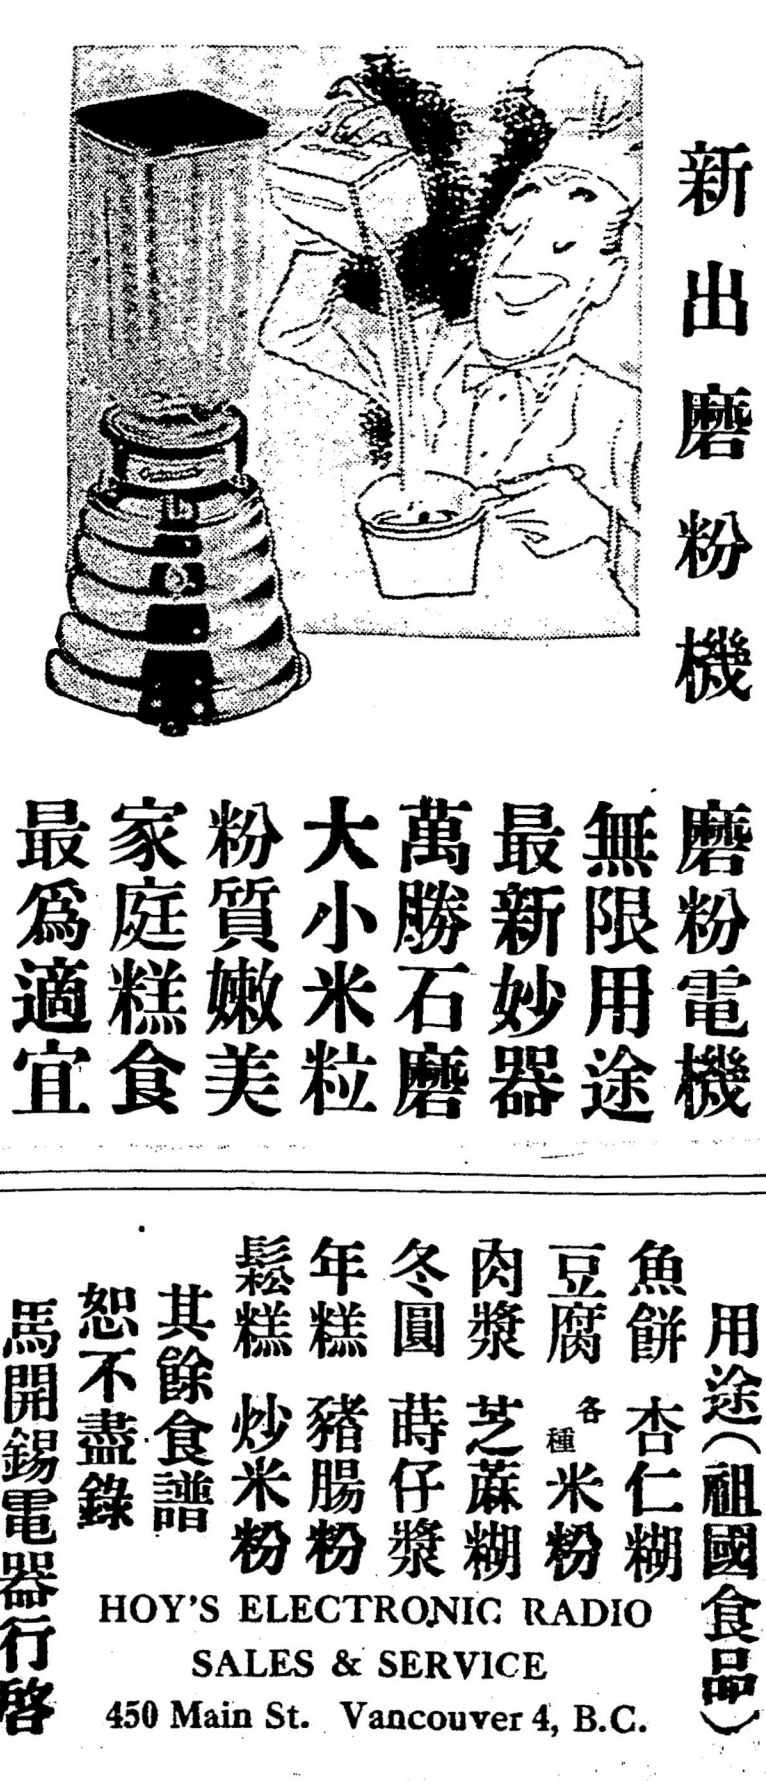 新出磨粉機
磨粉電機
無限用途
最新妙器
萬勝石磨
大小米粒
粉質嫩美
家庭糕食
最爲適宜
用途（祖國食品）
魚餅 杏仁糊
豆腐 各種米粉
肉漿 芝蔴糊
冬圓 蒔仔漿
年糕 豬腸粉
鬆糕 炒米粉
其餘食譜
恕不盡錄
馬開錫電器行啓
HOY'S ELECTRONIC RADIO
SALES & SERVICE
450 Main St. Vancouver 4, B.C.